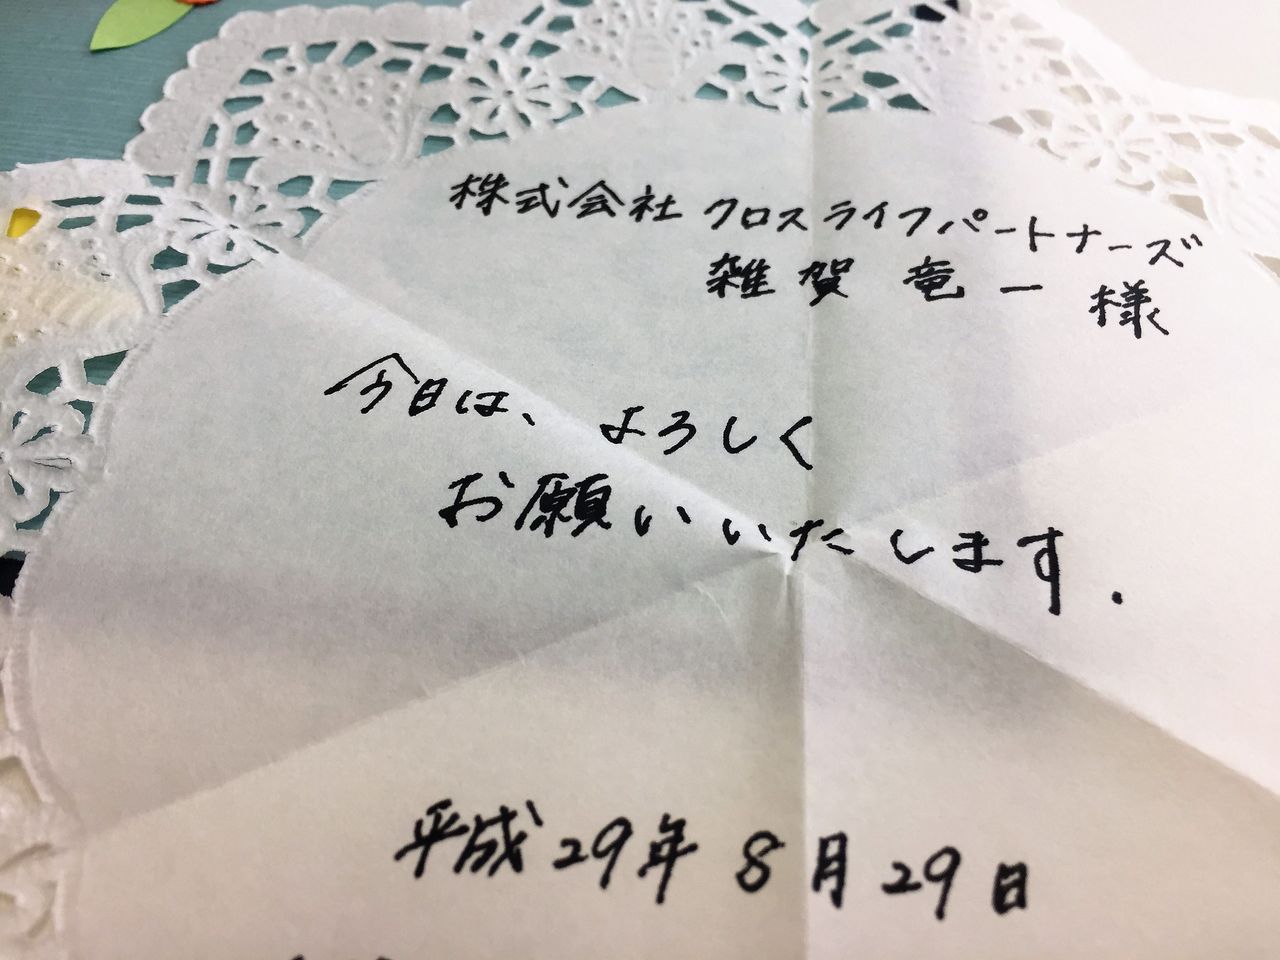 株式会社 クロスライフパートナーズ
雑賀 竜一 様
今日は、よろしく
お願いいたします.
平成29年 8月29日